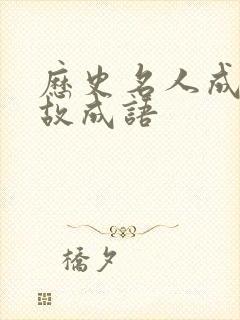 歷史名人成
故成語
橋夕